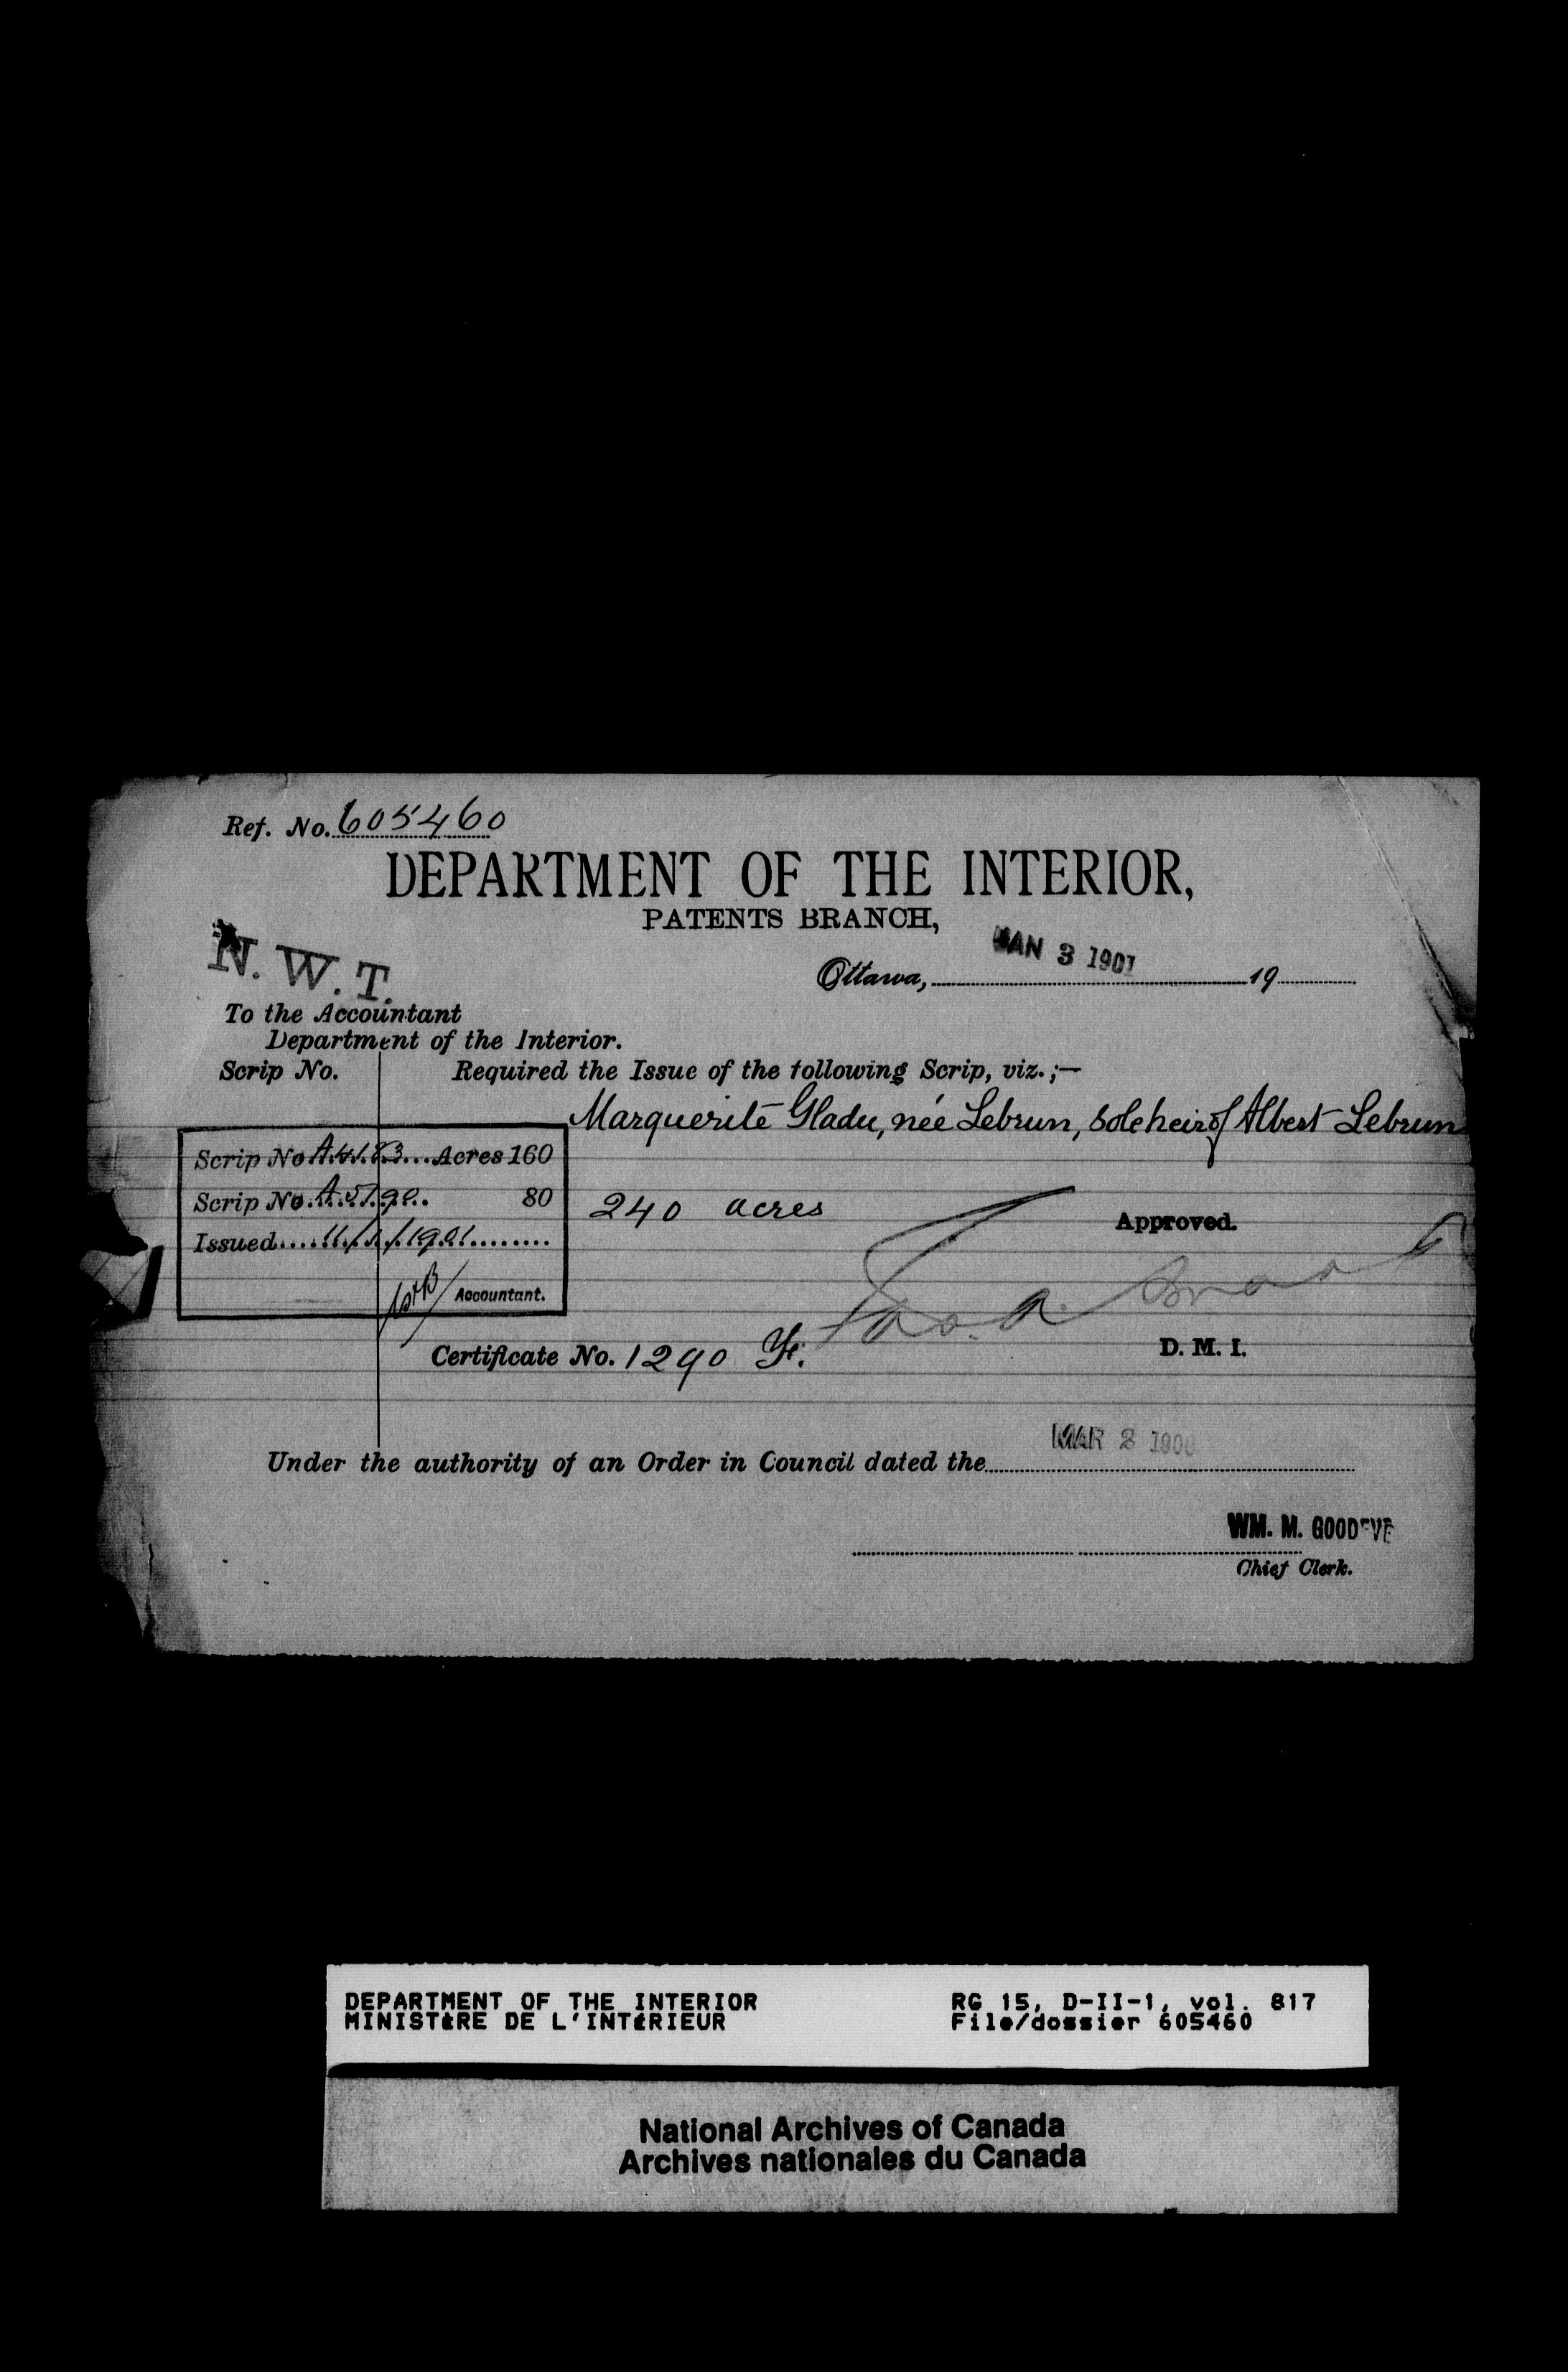 Ref. No. 605460
DEPARTMENT OF THE INTERIOR,
PATENTS BRANCH,
N. W. T.
Ottawa, JAN 3 1901 19
To the Accountant
Department of the Interior.
Scrip No. Required the Issue of the following Scrip, viz.;—
Marguerite Gladu, née Lebrun, sole heir of Albert Lebrun
Scrip No. A.4183 Acres 160
Scrip No. 80
240 acres
Approved.
Issued 11/1/1901
Accountant.
Certificate No. 1290
D. M. I.
Under the authority of an Order in Council dated the MAR 2 1900
WM. M. GOODEVE
Chief Clerk.
DEPARTMENT OF THE INTERIOR RG 15, D-II-1, vol. 817
MINISTÈRE DE L'INTÉRIEUR File/dossier 605460
National Archives of Canada
Archives nationales du Canada